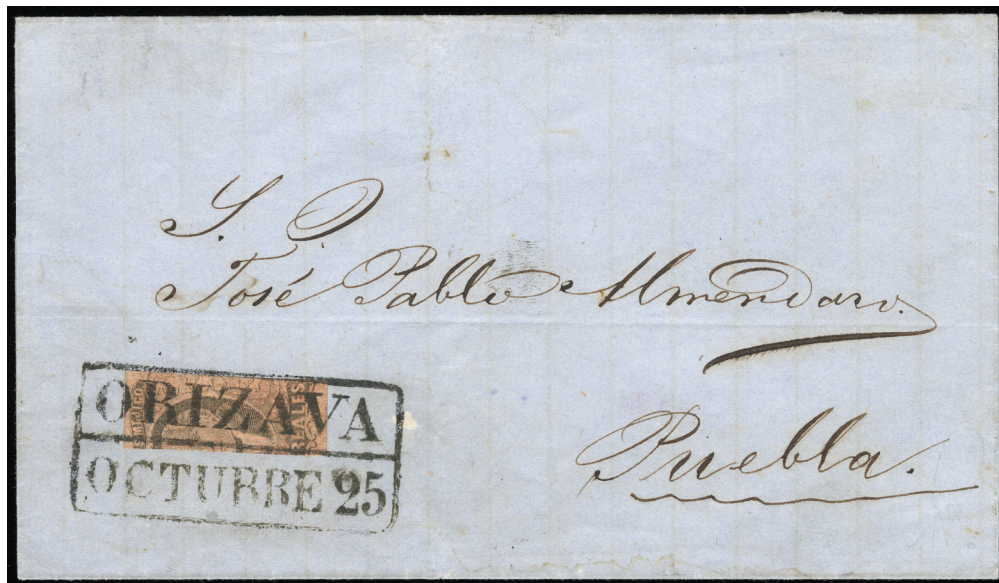 S. D.
José Pablo Almendaro.
Puebla.
ORIZAVA
OCTUBRE 25
REALES